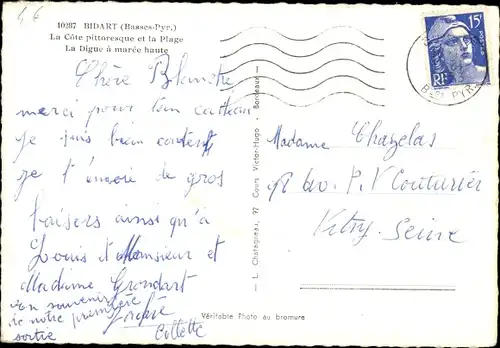 46
10287 BIDART (Basses-Pyr.)
La Côte pittoresque et la Plage
La Digue à marée haute
Chère Blanche,
merci pour ton cadeau
je suis bien content
je t'envoie de gros
baisers ainsi qu'à
Louis et Monsieur et
Madame Grondart
en souvenir
de notre première
sortie
Colette
Madame Chazelas
Av P. V Couturier
Vitry-Seine
L. Chatagneau, 97 Cours Victor-Hugo - Bordeaux
Véritable Photo au bromure
15F
RF
Bses PYR.